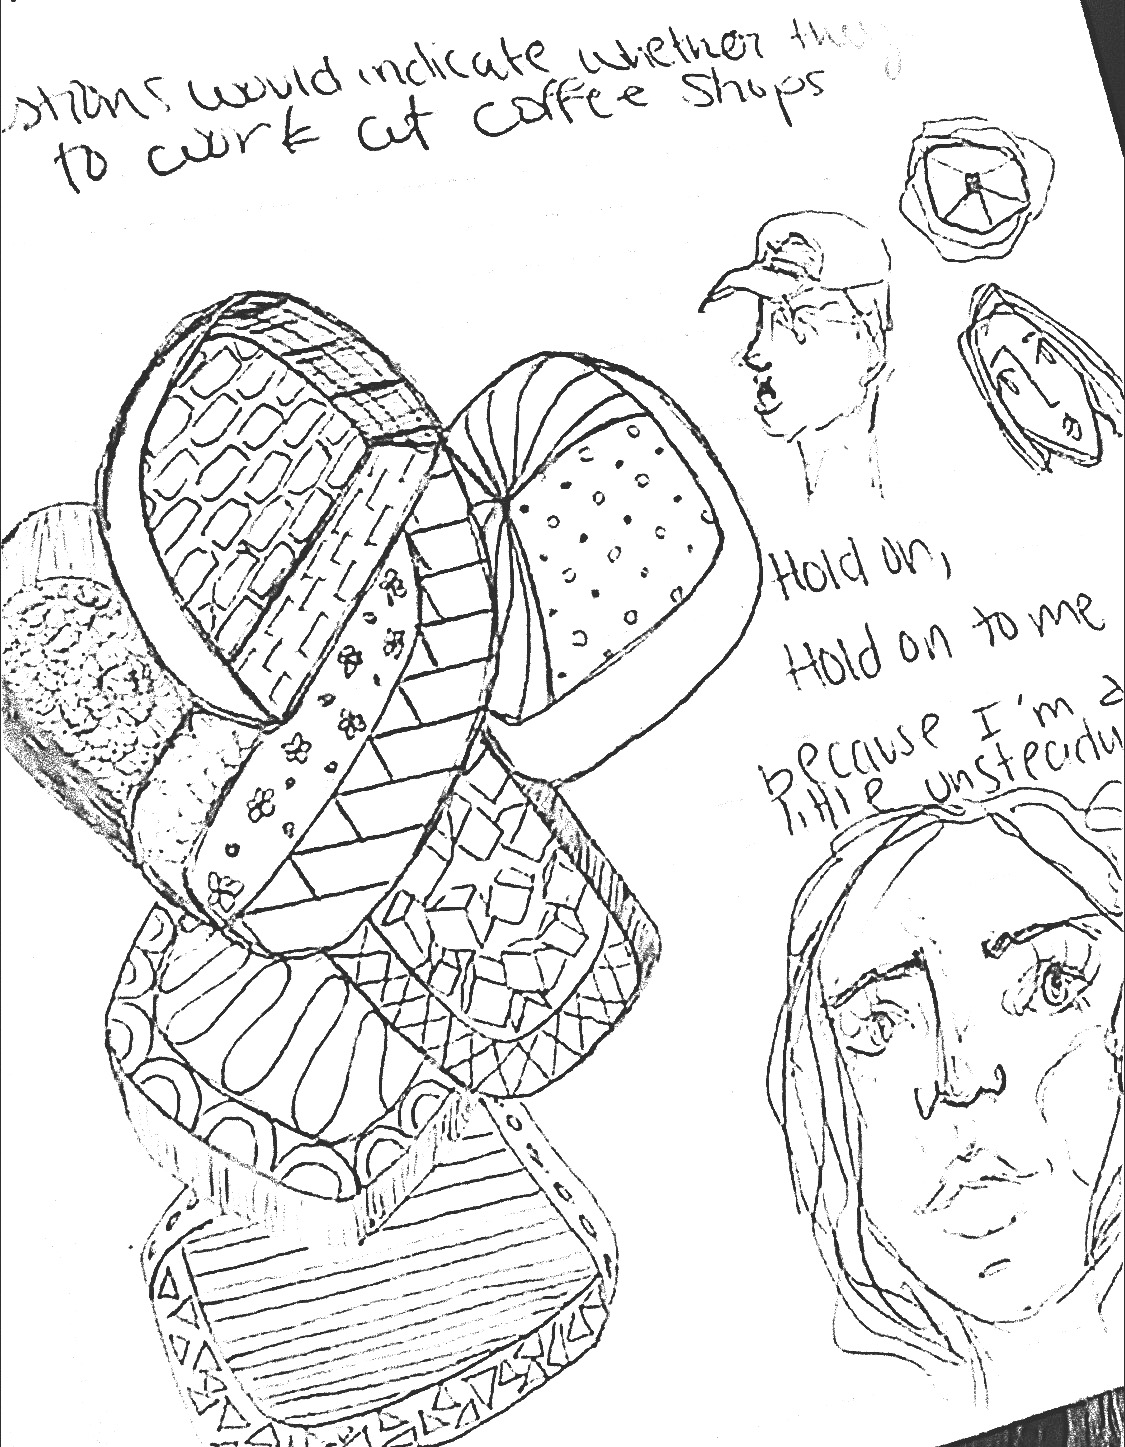 stions would indicate whether they
to work at coffee shops
Hold on,
Hold on to me
because I'm a
little unsteady